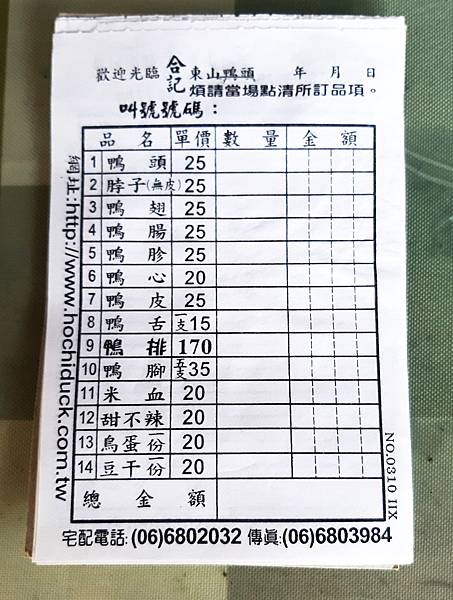 歡迎光臨 合記 東山鴨頭 年 月 日
煩請當場點清所訂品項。
叫號號碼：
品 名 單價 數 量 金 額
1 鴨 頭 25
2 脖子(無皮) 25
3 鴨 翅 25
4 鴨 腸 25
5 鴨 胗 25
6 鴨 心 20
7 鴨 皮 25
8 鴨 舌 一支15
9 鴨 排 170
10 鴨 腳 五支35
11 米 血 20
12 甜不辣 20
13 鳥蛋一份 20
14 豆干一份 20
總 金 額
宅配電話:(06)6802032 傳真:(06)6803984
網址:http://www.hochiduck.com.tw
NO.0310 IIX